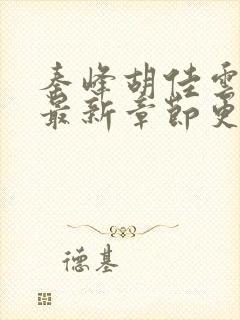 秦峰胡佳雲
最新章節更
德基